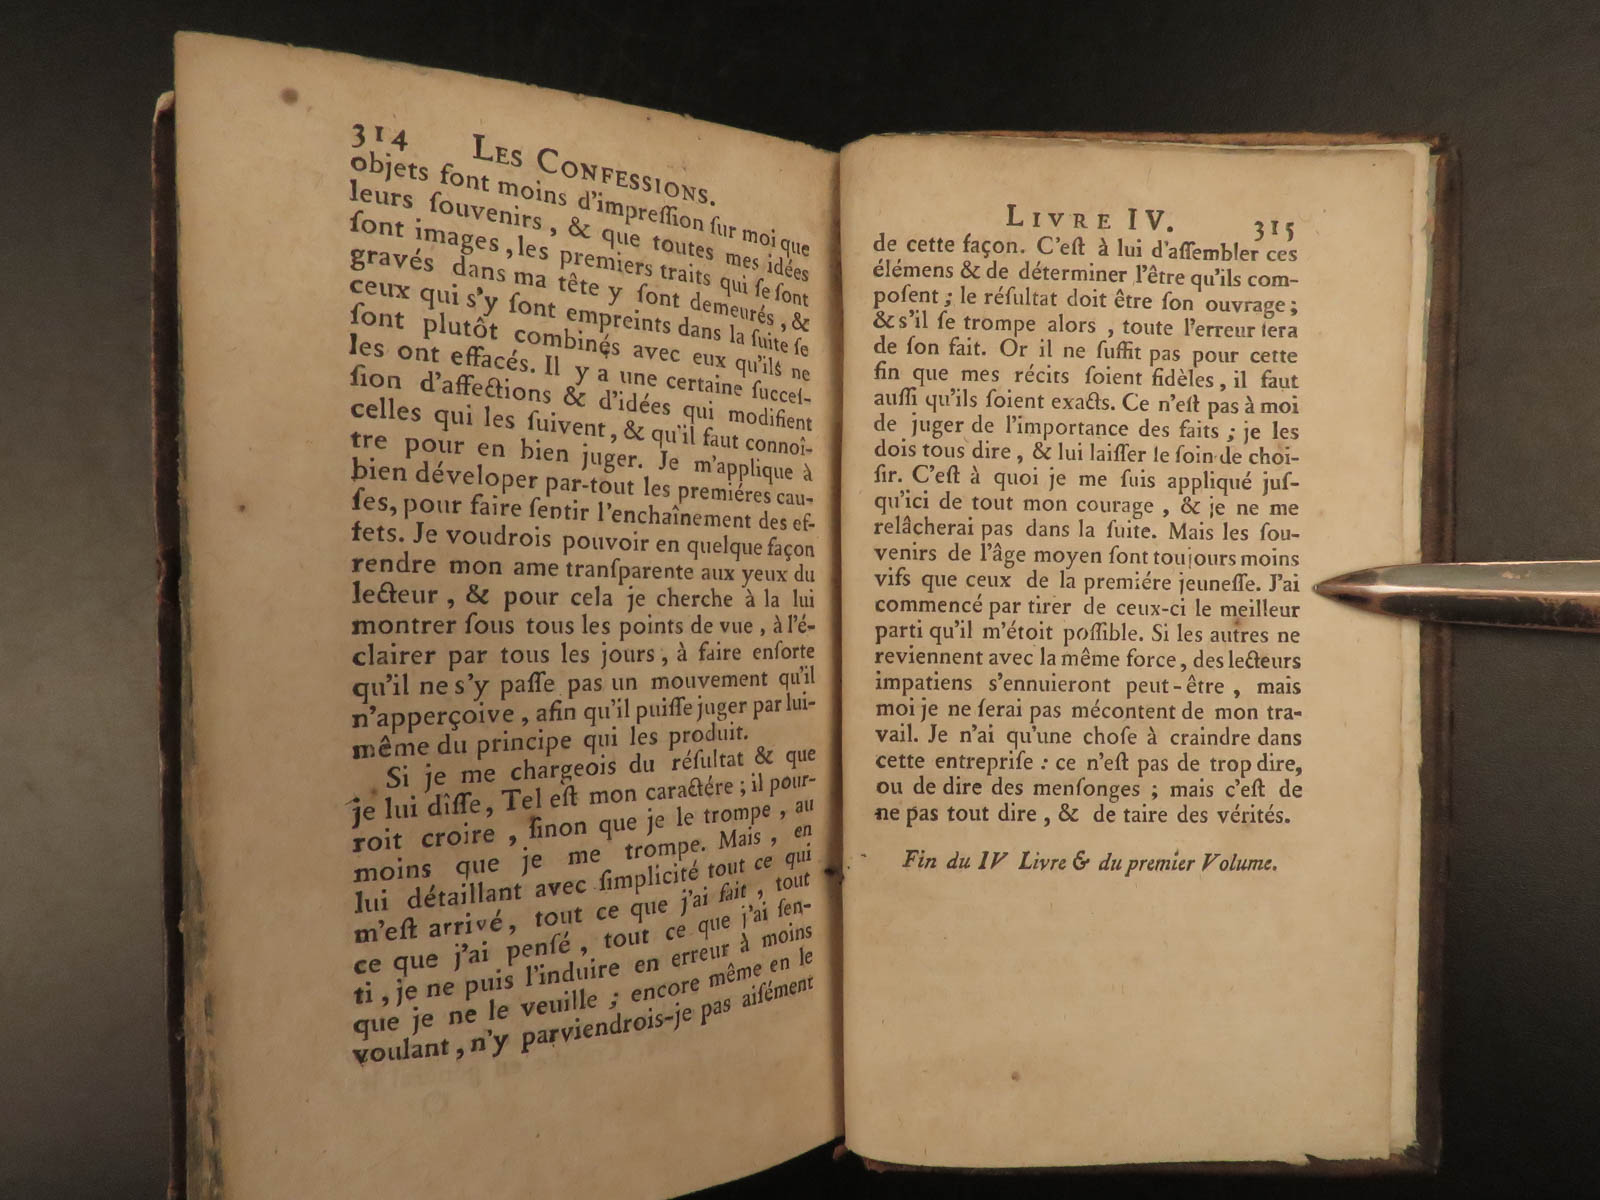 314 LES CONFESSIONS.
objets font moins d'impreſſion ſur moi que
leurs ſouvenirs, & que toutes mes idées
ſont images, les premiers traits qui ſe ſont
gravés dans ma tête y ſont demeurés, &
ceux qui s'y ſont empreints dans la ſuite ſe
ſont plutôt combinés avec eux qu'ils ne
les ont effacés. Il y a une certaine ſucceſ-
ſion d'affections & d'idées qui modifient
celles qui les ſuivent, & qu'il faut connoî-
tre pour en bien juger. Je m'applique à
bien déveloper par-tout les premiéres cau-
ſes, pour faire ſentir l'enchaînement des ef-
fets. Je voudrois pouvoir en quelque façon
rendre mon ame tranſparente aux yeux du
lecteur, & pour cela je cherche à la lui
montrer ſous tous les points de vue, à l'é-
clairer par tous les jours, à faire enſorte
qu'il ne s'y paſſe pas un mouvement qu'il
n'apperçoive, afin qu'il puiſſe juger par lui-
même du principe qui les produit.
Si je me chargeois du réſultat & que
je lui dîſſe, Tel eſt mon caractére; il pour-
roit croire, ſinon que je le trompe, au
moins que je me trompe. Mais, en
lui détaillant avec ſimplicité tout ce qui
m'eſt arrivé, tout ce que j'ai fait, tout
ce que j'ai penſé, tout ce que j'ai ſen-
ti, je ne puis l'induire en erreur à moins
que je ne le veuille; encore même en le
voulant, n'y parviendrois-je pas aiſément
LIVRE IV. 315
de cette façon. C'eſt à lui d'aſſembler ces
élémens & de déterminer l'être qu'ils com-
poſent; le réſultat doit être ſon ouvrage;
& s'il ſe trompe alors, toute l'erreur ſera
de ſon fait. Or il ne ſuffit pas pour cette
fin que mes récits ſoient fidèles, il faut
auſſi qu'ils ſoient exacts. Ce n'eſt pas à moi
de juger de l'importance des faits; je les
dois tous dire, & lui laiſſer le ſoin de choi-
ſir. C'eſt à quoi je me ſuis appliqué juſ-
qu'ici de tout mon courage, & je ne me
relâcherai pas dans la ſuite. Mais les ſou-
venirs de l'âge moyen ſont toujours moins
vifs que ceux de la premiére jeuneſſe. J'ai
commencé par tirer de ceux-ci le meilleur
parti qu'il m'étoit poſſible. Si les autres ne
reviennent avec la même force, des lecteurs
impatiens s'ennuieront peut-être, mais
moi je ne ſerai pas mécontent de mon tra-
vail. Je n'ai qu'une choſe à craindre dans
cette entrepriſe: ce n'eſt pas de trop dire,
ou de dire des menſonges; mais c'eſt de
ne pas tout dire, & de taire des vérités.
Fin du IV Livre & du premier Volume.